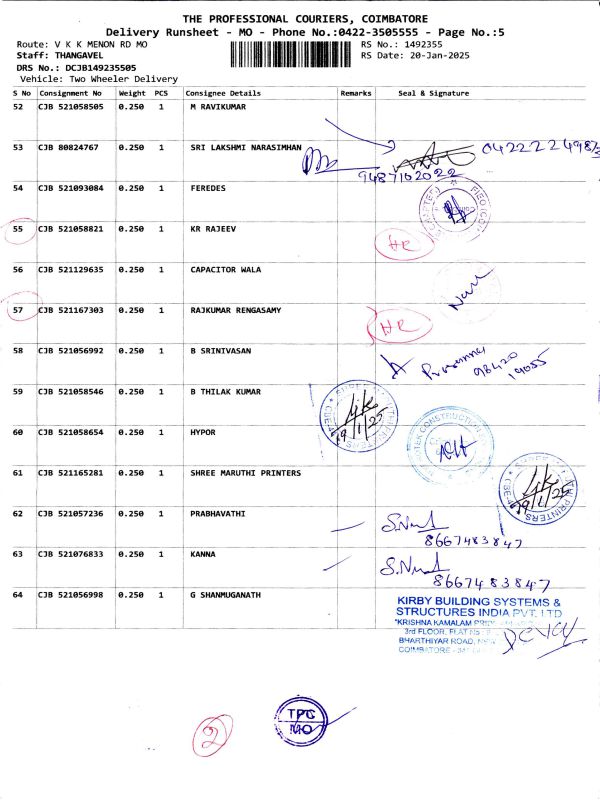 THE PROFESSIONAL COURIERS, COIMBATORE
Delivery Runsheet - MO - Phone No.:0422-3505555 - Page No.:5
Route: V K K MENON RD MO RS No.: 1492355
Staff: THANGAVEL RS Date: 20-Jan-2025
DRS No.: DCJB149235505
Vehicle: Two Wheeler Delivery
S No Consignment No Weight PCS Consignee Details Remarks Seal & Signature
52 CJB 521058505 0.250 1 M RAVIKUMAR
53 CJB 80824767 0.250 1 SRI LAKSHMI NARASIMHAN
9487102022
54 CJB 521093084 0.250 1 FEREDES
55 CJB 521058821 0.250 1 KR RAJEEV HR
56 CJB 521129635 0.250 1 CAPACITOR WALA
57 CJB 521167303 0.250 1 RAJKUMAR RENGASAMY HR
58 CJB 521056992 0.250 1 B SRINIVASAN
98420
19055
59 CJB 521058546 0.250 1 B THILAK KUMAR
19/1/25
60 CJB 521058654 0.250 1 HYPOR
61 CJB 521165281 0.250 1 SHREE MARUTHI PRINTERS
19/1/25
62 CJB 521057236 0.250 1 PRABHAVATHI
8667483847
63 CJB 521076833 0.250 1 KANNA
8667483847
64 CJB 521056998 0.250 1 G SHANMUGANATH
KIRBY BUILDING SYSTEMS &
STRUCTURES INDIA PVT. LTD
"KRISHNA KAMALAM
3rd FLOOR, FLAT No
BHARTHIYAR ROAD,
COIMBATORE
2
TPC
MO